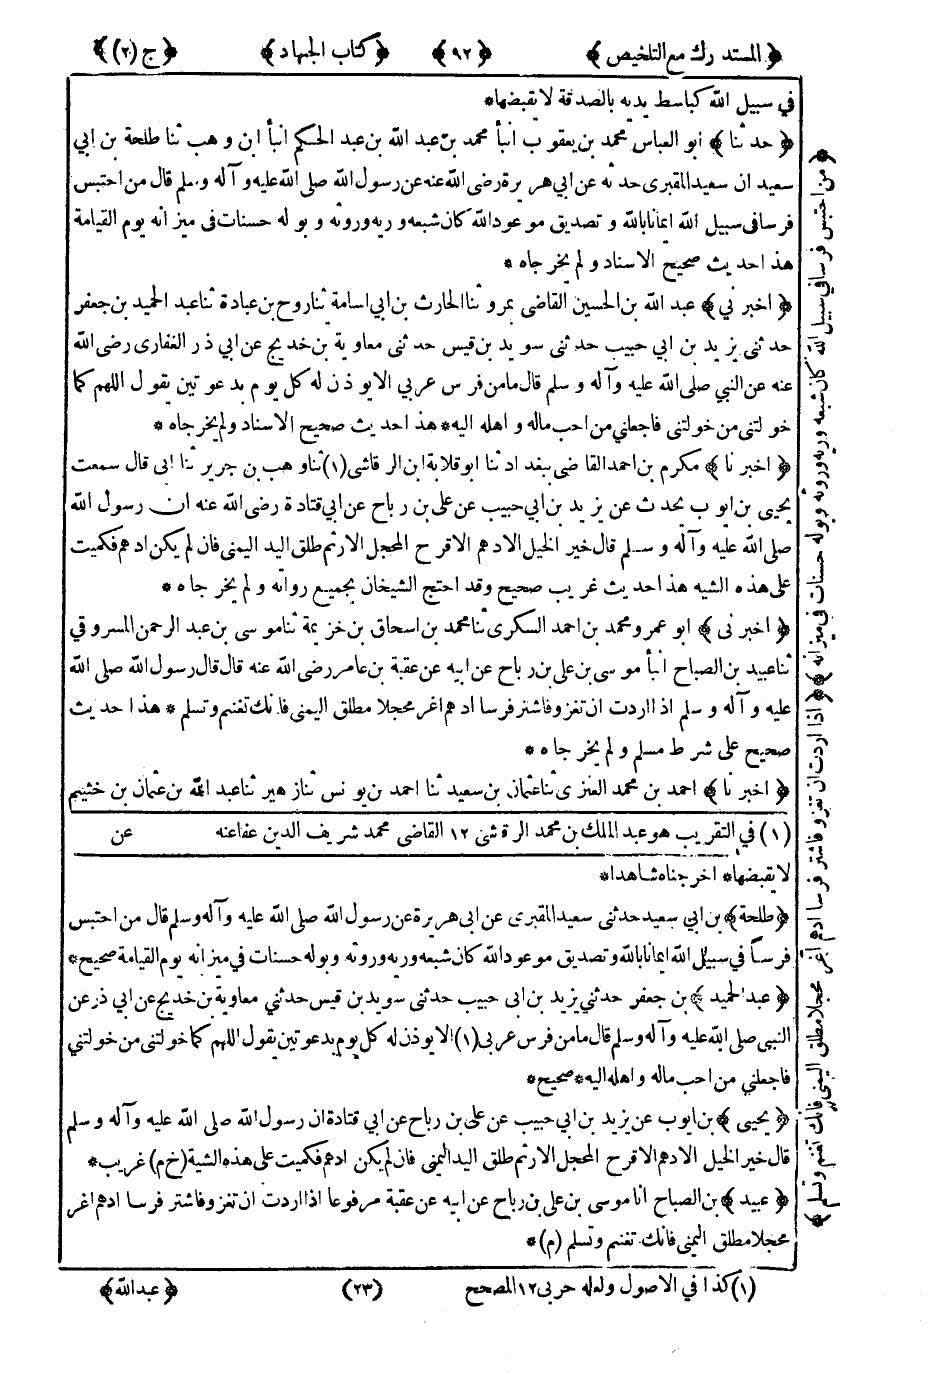 ﴿المستدرك مع التلخيص﴾ ﴿٩٢﴾ ﴿كتاب الجهاد﴾ ﴿ج (٢)﴾
في سبيل الله كباسط يديه بالصدقة لا يقبضها*
﴿حدثنا﴾ ابو العباس محمد بن يعقوب انبأ محمد بن عبد الله بن عبد الحكم انبأ ابن وهب ثنا طلحة بن ابي
سعيد ان سعيد المقبرى حدثه عن ابي هريرة رضى الله عنه عن رسول الله صلى الله عليه وآله وسلم قال من احتبس
فرسا في سبيل الله ايمانا بالله وتصديق موعود الله كان شبعه وريه وروثه وبوله حسنات في ميزانه يوم القيامة
هذا حديث صحيح الاسناد ولم يخرجاه *
﴿اخبرني﴾ عبد الله بن الحسين القاضى بمرو ثنا الحارث بن ابي اسامة ثنا روح بن عبادة ثنا عبد الحميد بن جعفر
حدثنى يزيد بن ابي حبيب حدثنى سويد بن قيس حدثنى معاوية بن خديج عن ابي ذر الغفارى رضى الله
عنه عن النبي صلى الله عليه وآله وسلم قال ما من فرس عربي الا يوذن له كل يوم بدعوتين يقول اللهم كما
خولتنى من خولتنى فاجعلني من احب ماله واهله اليه* هذا حديث صحيح الاسناد ولم يخرجاه *
﴿اخبرنا﴾ مكرم بن احمد القاضى ببغداد ثنا ابو قلابة ابن الرقاشى (١) ثنا وهب بن جرير ثنا ابى قال سمعت
يحيى بن ايوب يحدث عن يزيد بن ابي حبيب عن على بن رباح عن ابي قتادة رضى الله عنه ان رسول الله
صلى الله عليه وآله وسلم قال خير الخيل الادهم الاقرح المحجل الارثم طلق اليد اليمنى فان لم يكن ادهم فكميت
على هذه الشيه هذا حديث غريب صحيح وقد احتج الشيخان بجميع رواته ولم يخرجاه *
﴿اخبرنى﴾ ابو عمرو محمد بن احمد السكرى ثنا محمد بن اسحاق بن خزيمة ثنا موسى بن عبد الرحمن المسروقي
ثنا عبيد بن الصباح انبأ موسى بن على بن رباح عن ابيه عن عقبة بن عامر رضى الله عنه قال قال رسول الله صلى الله
عليه وآله وسلم اذا اردت ان تغزو فاشتر فرسا ادهم اغر محجلا مطلق اليمنى فانك تغنم وتسلم * هذا حديث
صحيح على شرط مسلم ولم يخرجاه *
﴿اخبرنا﴾ احمد بن محمد العنزى ثنا عثمان بن سعيد ثنا احمد بن يونس ثنا زهير ثنا عبد الله بن عثمان بن خثيم
(١) في التقريب هو عبد الملك بن محمد الرقاشى ١٢ القاضى محمد شريف الدين عفا عنه عن
لا يقبضها* اخرجناه شاهدا*
﴿طلحة﴾ بن ابي سعيد حدثنى سعيد المقبرى عن ابي هريرة عن رسول الله صلى الله عليه وآله وسلم قال من احتبس
فرساً في سبيل الله ايمانا بالله وتصديق موعود الله كان شبعه وريه وروثه وبوله حسنات في ميزانه يوم القيامة صحيح*
﴿عبد الحميد﴾ بن جعفر حدثني يزيد بن ابى حبيب حدثنى سويد بن قيس حدثني معاوية بن خديج عن ابي ذر عن
النبي صلى الله عليه وآله وسلم قال ما من فرس عربى (١) الا يوذن له كل يوم بدعوتين يقول اللهم كما خولتنى من خولتني
فاجعلني من احب ماله واهله اليه* صحيح*
﴿يحيى﴾ بن ايوب عن يزيد بن ابي حبيب عن على بن رباح عن ابي قتادة ان رسول الله صلى الله عليه وآله وسلم
قال خير الخيل الادهم الاقرح المحجل الارثم طلق اليد اليمنى فان لم يكن ادهم فكميت على هذه الشية (خ م) غريب*
﴿عبيد﴾ بن الصباح انا موسى بن على بن رباح عن ابيه عن عقبة مرفوعا اذا اردت ان تغزو فاشتر فرسا ادهم اغر
محجلا مطلق اليمنى فانك تغنم وتسلم (م)*
(١) كذا في الاصول ولعله حربى ١٢ المصحح (٢٣) ﴿عبد الله﴾
﴿من احتبس فرسا في سبيل الله كان شبعه وريه وروثه وبوله حسنات في ميزانه﴾ ﴿اذا اردت ان تغزو فاشتر فرسا ادهم اغر محجلا مطلق اليمنى فانك تغنم وتسلم﴾